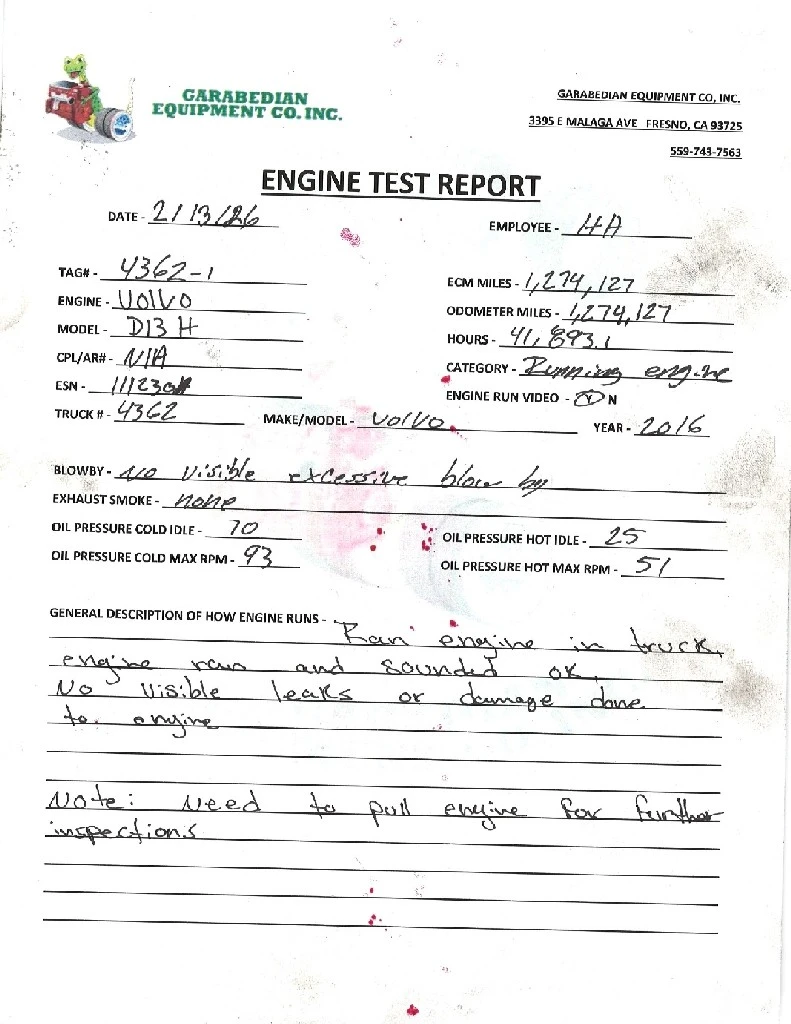 GARABEDIAN
EQUIPMENT CO. INC.
GARABEDIAN EQUIPMENT CO, INC.
3395 E MALAGA AVE FRESNO, CA 93725
559-743-7563
ENGINE TEST REPORT
DATE - 2/13/26
EMPLOYEE - HA
TAG# - 4362-1
ECM MILES - 1,274,127
ENGINE - VOLVO
ODOMETER MILES - 1,274,127
MODEL - D13 H
HOURS - 41,893.1
CPL/AR# - N/A
CATEGORY - Running engine
ESN - 111230
ENGINE RUN VIDEO - Y N
TRUCK # - 4362
MAKE/MODEL - Volvo
YEAR - 2016
BLOWBY - No visible excessive blow by
EXHAUST SMOKE - none
OIL PRESSURE COLD IDLE - 70
OIL PRESSURE HOT IDLE - 25
OIL PRESSURE COLD MAX RPM - 93
OIL PRESSURE HOT MAX RPM - 51
GENERAL DESCRIPTION OF HOW ENGINE RUNS - Ran engine in truck,
engine ran and sounded ok,
No visible leaks or damage done
to engine
Note: Need to pull engine for further
inspections